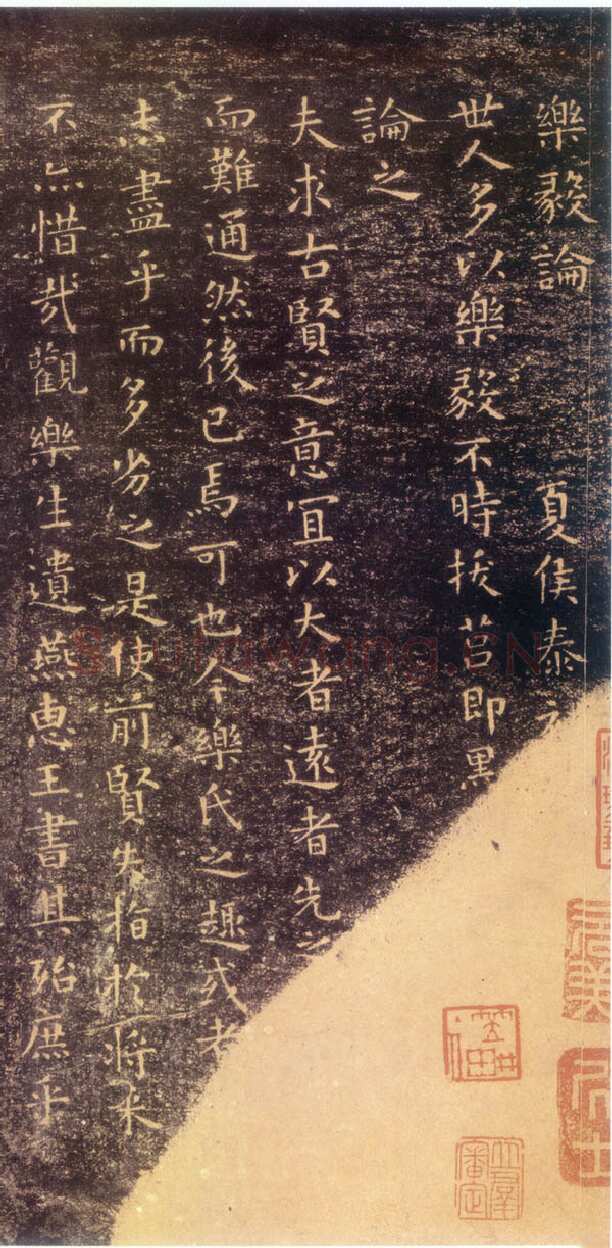 樂毅論 夏侯泰
世人多以樂毅不時拔莒即墨
論之
夫求古賢之意宜以大者遠者先之
而難通然後已焉可也今樂氏之趣或者
未盡乎而多劣之是使前賢失指於將来
不亦惜哉觀樂生遺燕惠王書其殆庶乎
Shufawang.CN